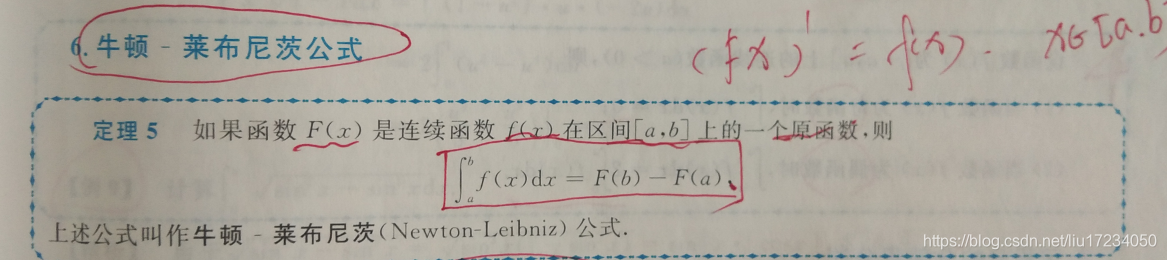 6. 牛顿－莱布尼茨公式
(f x)' = f(x). x∈[a.b
定理 5 如果函数 F(x) 是连续函数 f(x) 在区间[a,b]上的一个原函数,则
∫ₐᵇ f(x)dx = F(b) − F(a),
上述公式叫作牛顿－莱布尼茨(Newton-Leibniz)公式.
https://blog.csdn.net/liu17234050